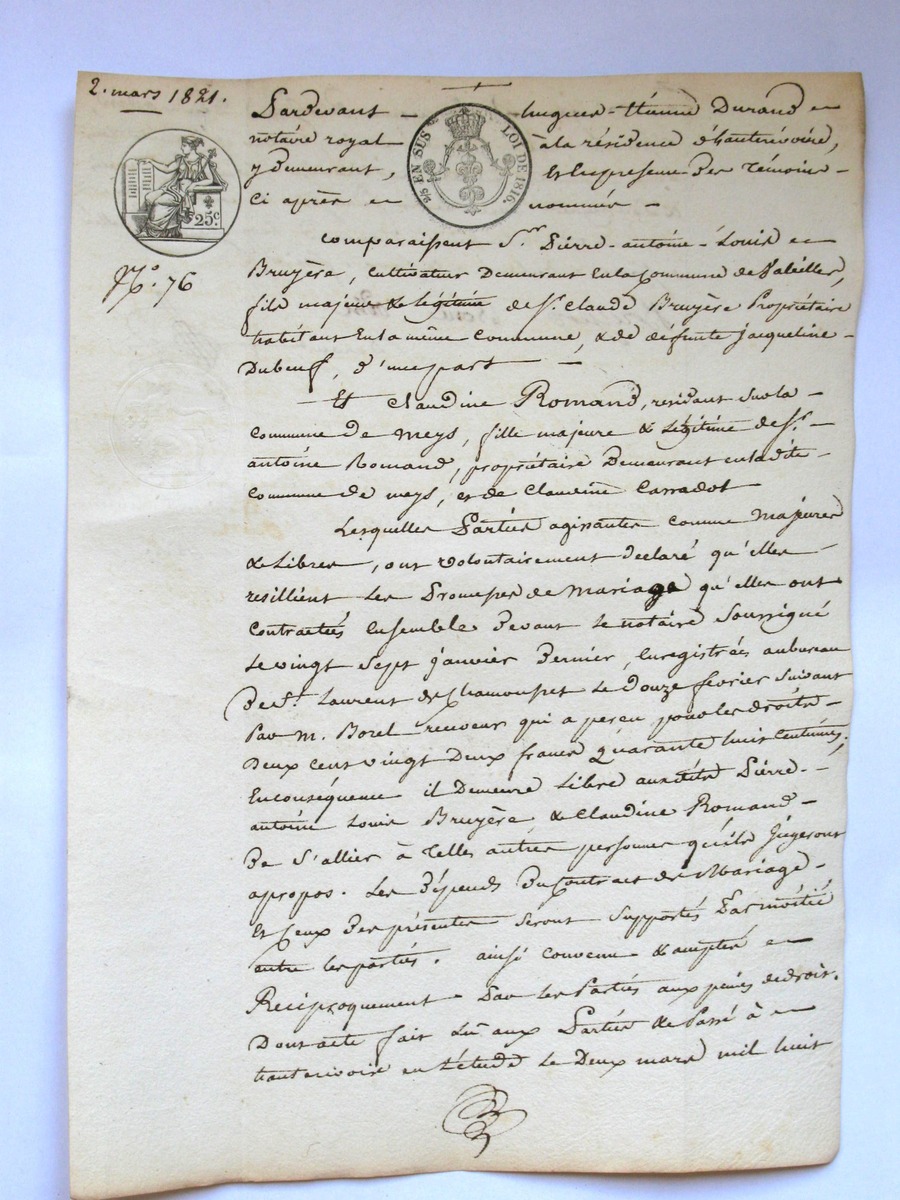 2. mars 1821.
Pardevant hugues-Étienne Durand
notaire royal à la résidence d'hauterivoire,
y Demeurant, et En presence Des Témoins
Ci après nommés
EN SUS LOI DE 1816.
25c.
N.o 76
Comparaissent S.r Pierre-antoine-Louis
Bruyère, Cultivateur Demeurant En la Commune de
fils majeur & Légitime de S.r Claude Bruyère Propriétaire
habitant En la même Commune, & de défunte Jacqueline
Dubeuf, d'une part
Et Claudine Romand, residant sur la
Commune De meys, fille majeure & Légitime de S.r
antoine Romand, propriétaire Demeurant en ladite
Commune de meys, et de Claudine Carradot
Lesquelles Parties agissantes comme Majeures
& Libres, ont volontairement declaré qu'elles
resilient Les Promesses de Mariage qu'elles ont
Contractées Ensemble Devant Le notaire Soussigné
Le vingt Sept janvier Dernier, Enregistrées au bureau
De S.t Laurent de Chamousset Le Douze fevrier Suivant
Par M. Borel receveur qui a perçu pour les droits
Deux cent vingt Deux francs Quarante huit Centimes.
En conséquence il Demeure Libre auxdits Pierre
antoine Louis Bruyère & Claudine Romand
De s'allier à Telles autres personnes qu'ils Jugeront
apropos. Les Dépends Du Contract de Mariage
Et Ceux Des présentes Seront Supportés Par moitié
entre les parties. ainsi convenu & accepté
Reciproquement Par les Parties aux peines de droit.
Dont acte fait Lu aux Parties & Passé à
hauterivoire en L'étude Le Deux mars mil huit